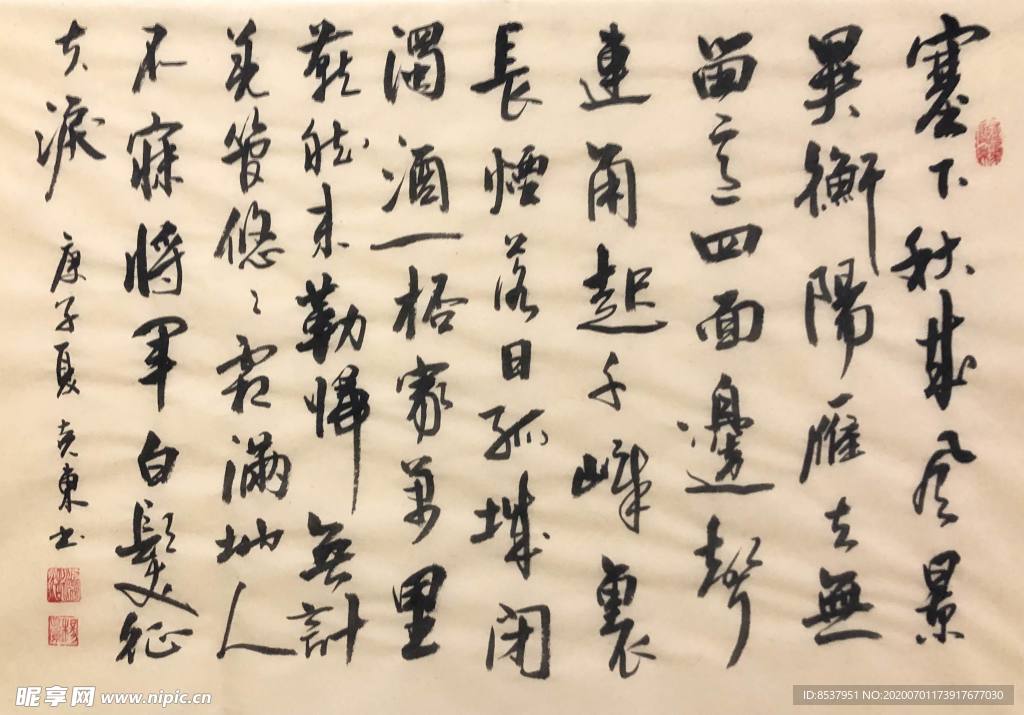 塞下秋來風景
異衡陽雁去無
留意四面邊聲
連角起千嶂裏
長煙落日孤城閉
濁酒一桮家萬里
燕然未勒歸無計
羌管悠悠霜滿地人
不寐將軍白髮征
夫淚 庚子夏 克東书
昵享网 www.nipic.cn
ID:8537951 NO:20200701173917677030